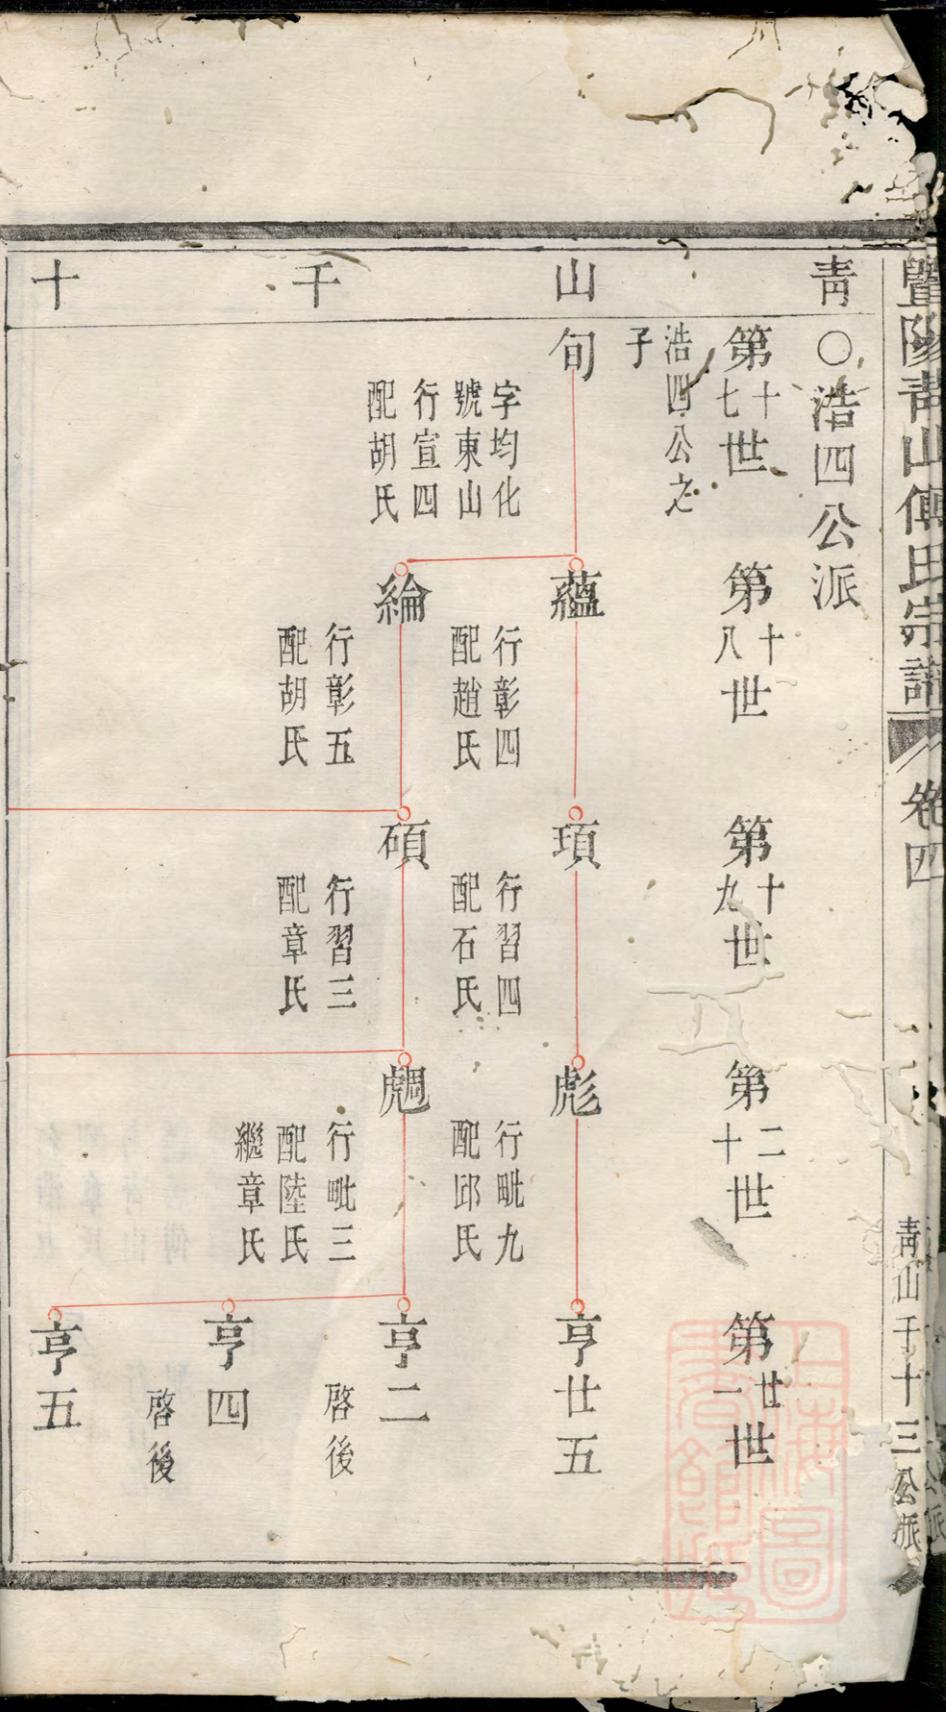 暨陽青山傅氏宗譜 卷四 青山千十三公派
青山千十
○浩四公派
第十七世
第十八世
第十九世
第二十世
第廿一世
浩四公之
子
旬
字均化
號東山
行宣四
配胡氏
蘊
行彰四
配趙氏
頊
行習四
配石氏
彪
行毗九
配邱氏
亨廿五
綸
行彰五
配胡氏
碩
行習三
配章氏
行毗三
配陸氏
繼章氏
亨二
啓後
亨四
啓後
亨五
上海圖書館藏